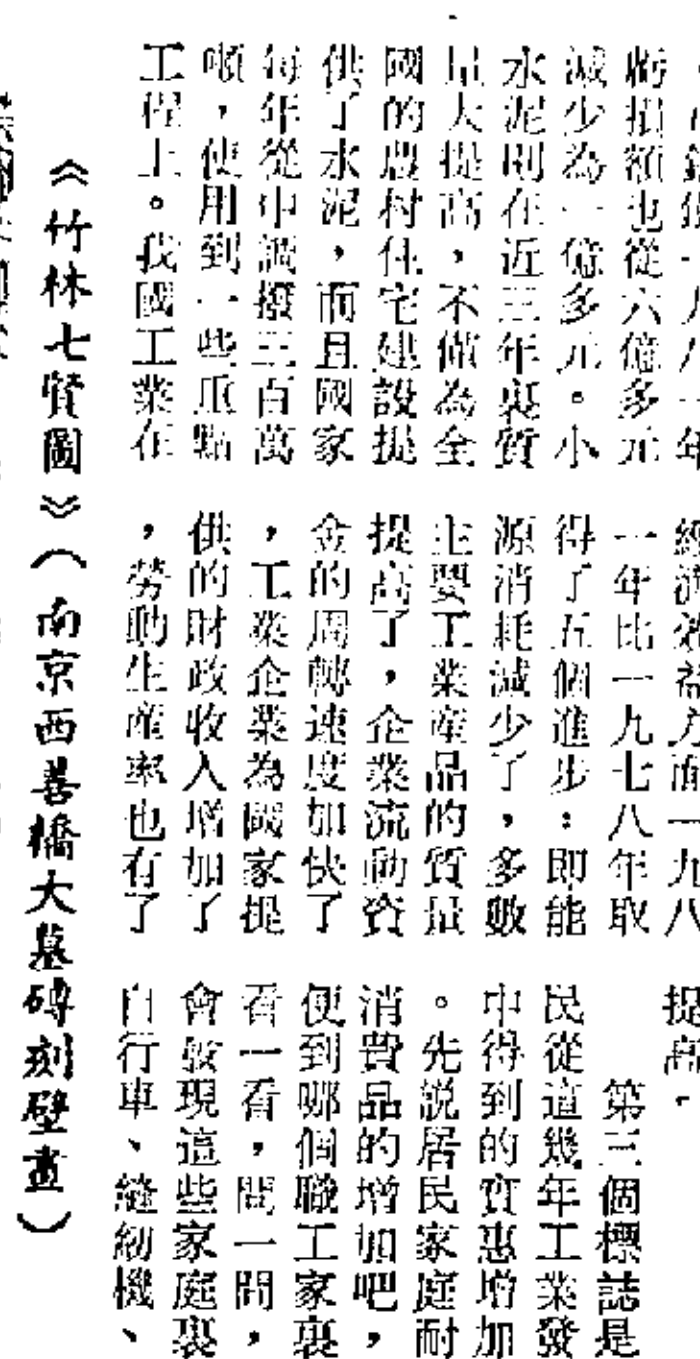 一九八一年
虧損額也從六億多元
減少為一億多元。小
水泥則在近三年裏質
量大提高，不僅為全
國的農村住宅建設提
供了水泥，而且國家
每年從中調撥三百萬
噸，使用到一些重點
工程上。我國工業在
經濟效益方面一九八
一年比一九七八年取
得了五個進步：即能
源消耗減少了，多數
主要工業產品的質量
提高了，企業流動資
金的周轉速度加快了
，工業企業為國家提
供的財政收入增加了
，勞動生產率也有了
提高。
第三個標誌是
民從這幾年工業發
中得到的實惠增加
。先説居民家庭耐
消費品的增加吧，
便到哪個職工家裏
看一看，問一問，
會發現這些家庭裏
自行車、縫紉機、
《竹林七賢圖》（南京西善橋大墓磚刻壁畫）